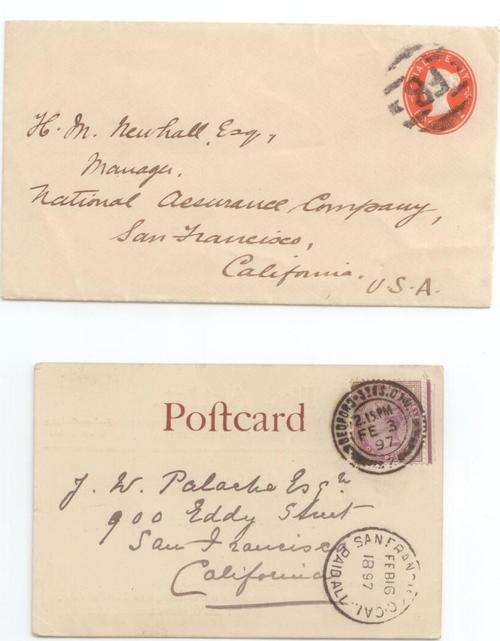 H. M. Newhall, Esq.,
Manager,
National Assurance Company,
San Francisco,
California.
U.S.A.
89
Postcard
BEDFORD
2.15 PM
FE 3
97
J. W. Palache Esqr
900 Eddy Street
San Francisco
California
SAN FRANCISCO, CAL.
FEB 16
1897
PAID ALL